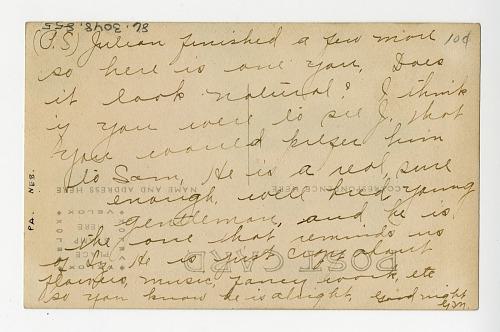 86.3048.855
(P.S) Julian finished a few more 10¢
so here is one you, Does
it look natural? I think
if you were to see J, that
you would prefer him
to Sam, He is a real sure
enough, well bred, young
gentleman, and he is
the one that reminds us
of He is just about
flowers, music, fancy work, etc
so you know he is alright, Good night
PA. NEB.
CORRESPONDENCE HERE
NAME AND ADDRESS HERE
POST CARD
PLACE
STAMP
HERE
VELOX